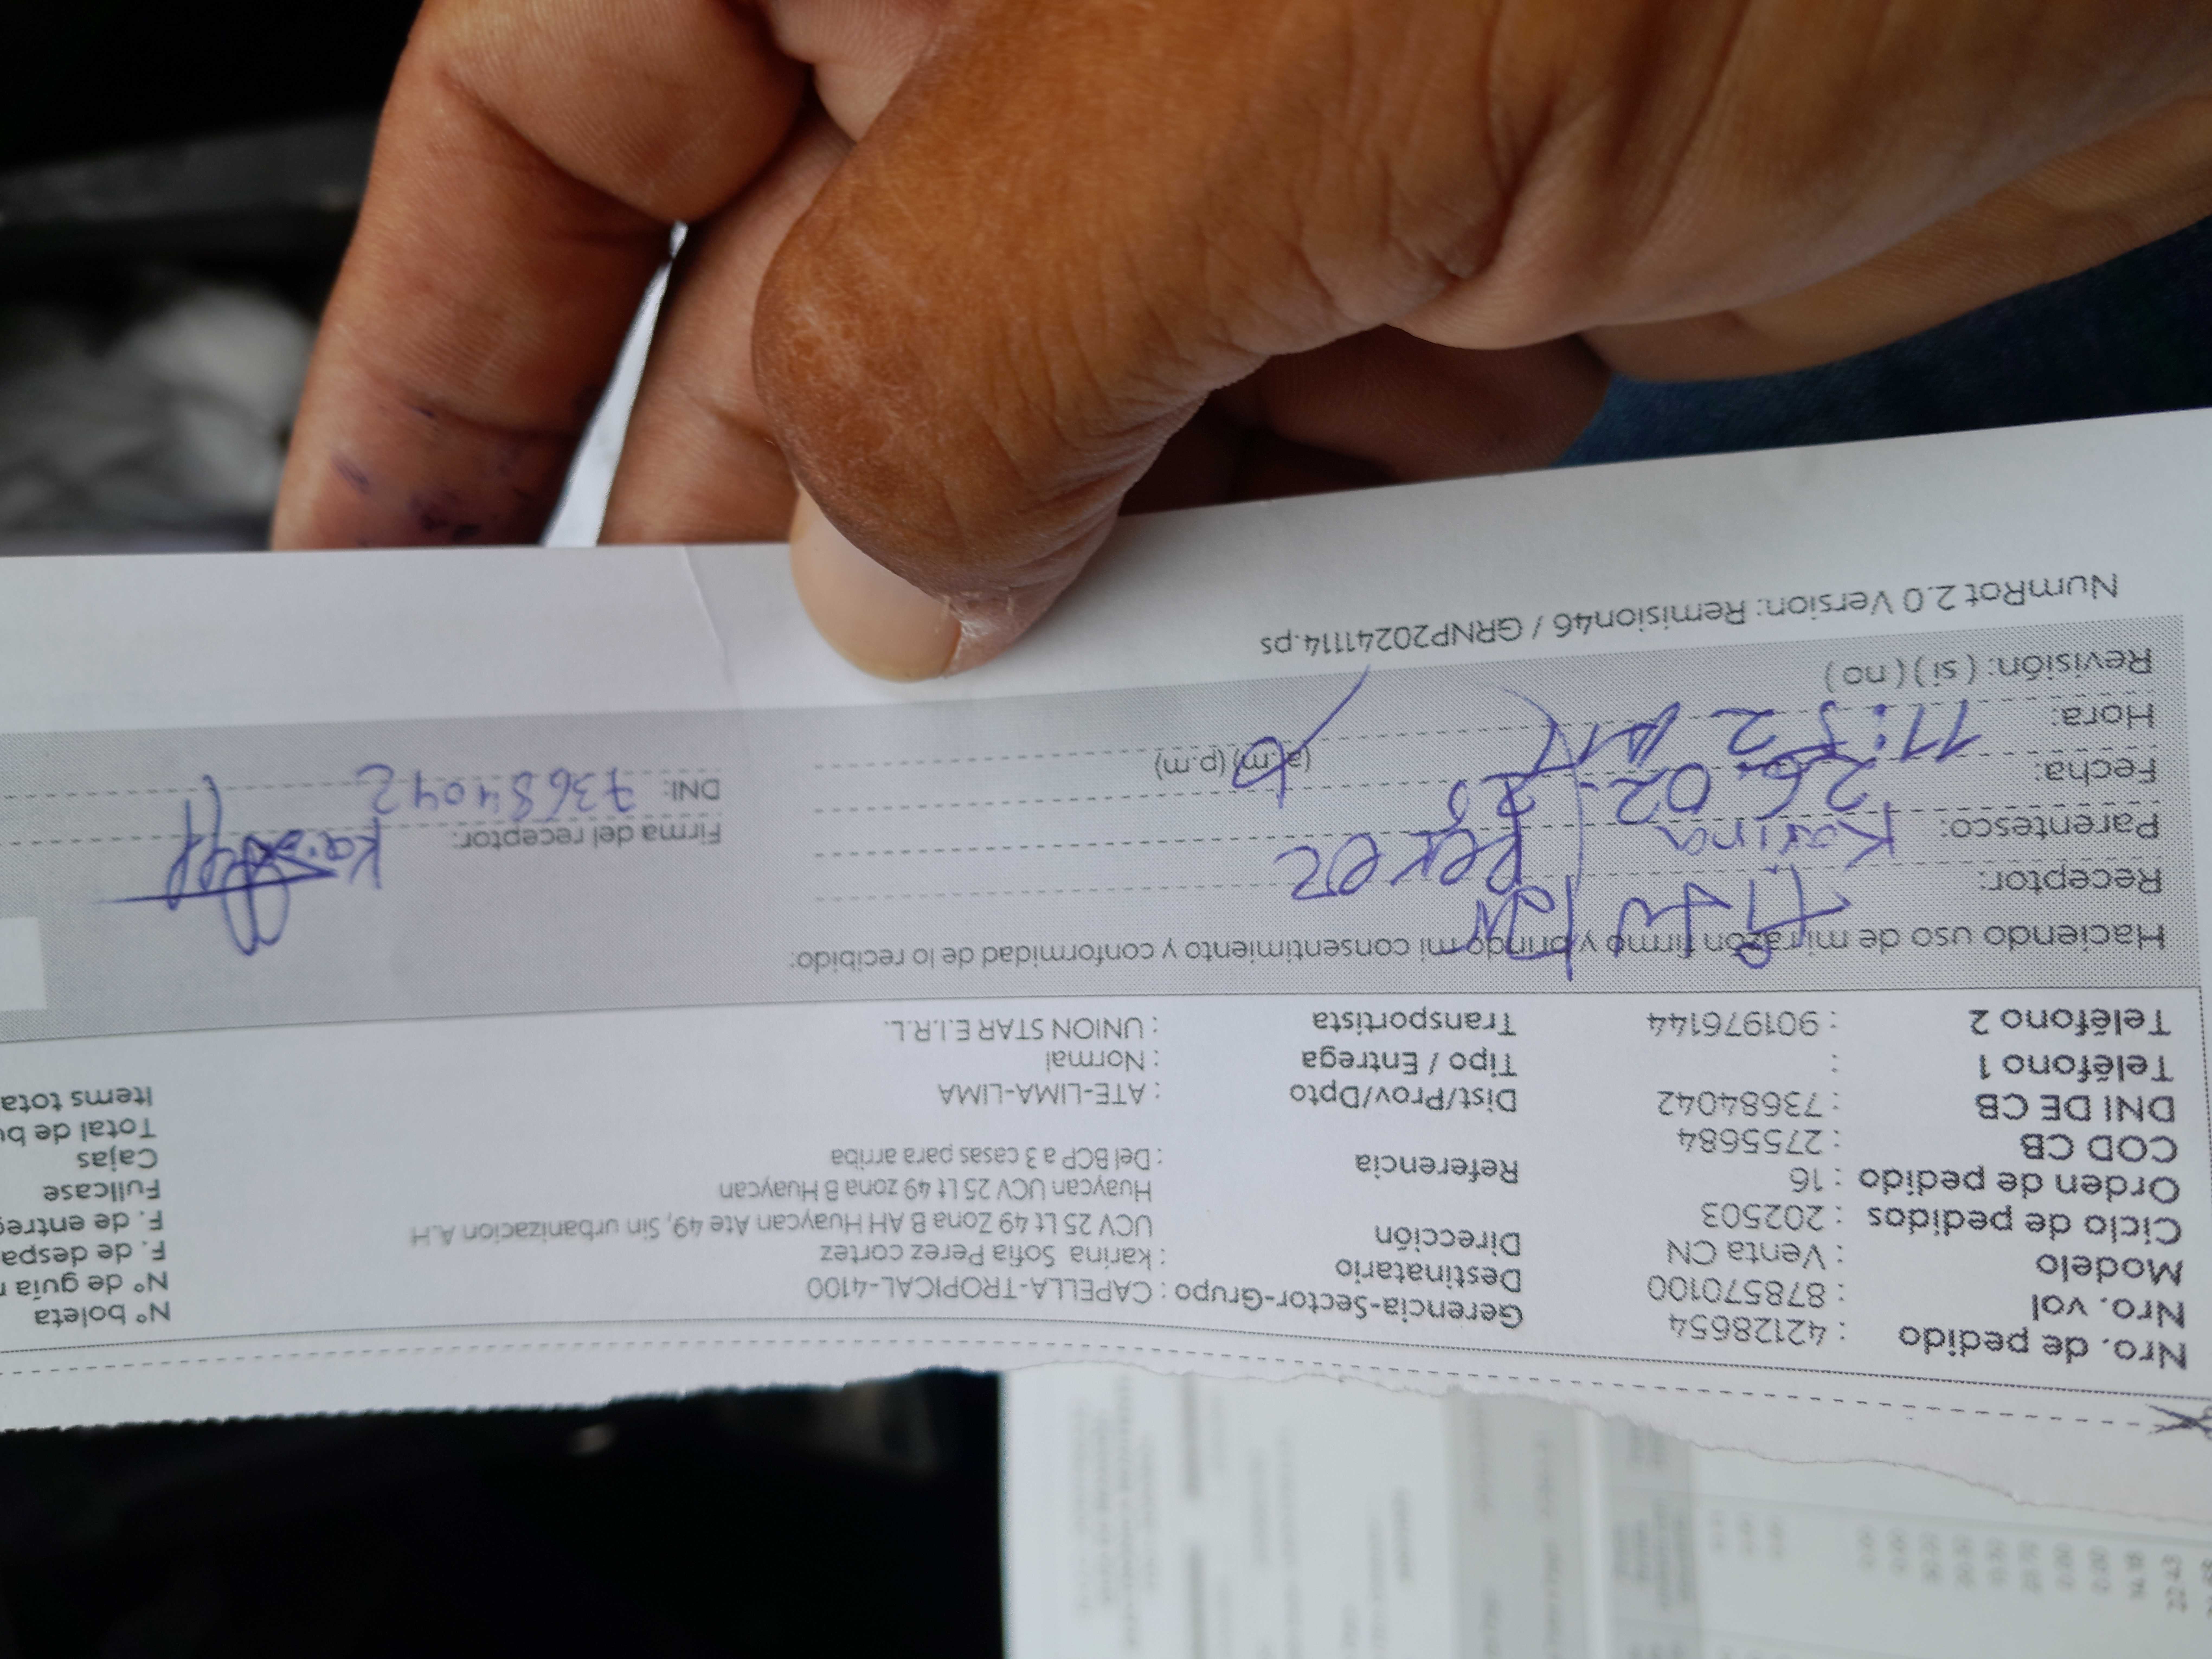 Nro. de pedido : 42128654 Gerencia-Sector-Grupo : CAPELLA-TROPICAL-4100 N° boleta
Nro. vol : 878570100 Destinatario : karina Sofia Perez cortez N° de guía
Modelo : Venta CN Dirección UCV 25 Lt 49 Zona B AH Huaycan Ate 49, Sin urbanizacion A.H F. de despa
Ciclo de pedidos : 202503 Huaycan UCV 25 Lt 49 zona B Huaycan F. de entre
Orden de pedido : 16 Referencia : Del BCP a 3 casas para arriba Fullcase
COD CB : 2755684 Cajas
DNI DE CB : 73684042 Dist/Prov/Dpto : ATE-LIMA-LIMA Total de
Teléfono 1 : Tipo / Entrega : Normal Items tota
Teléfono 2 : 901976144 Transportista : UNION STAR E.I.R.L.
Haciendo uso de mi razón firmo y brindo mi consentimiento y conformidad de lo recibido:
Receptor: Titular
Parentesco: Karina Perez Firma del receptor:
Fecha: 26-02-25 DNI: 73684042
Hora: 11:52 AM (a.m) (p.m)
Revisión: ( si ) ( no )
NumRot 2.0 Version: Remision46 / GRNP20241114.ps